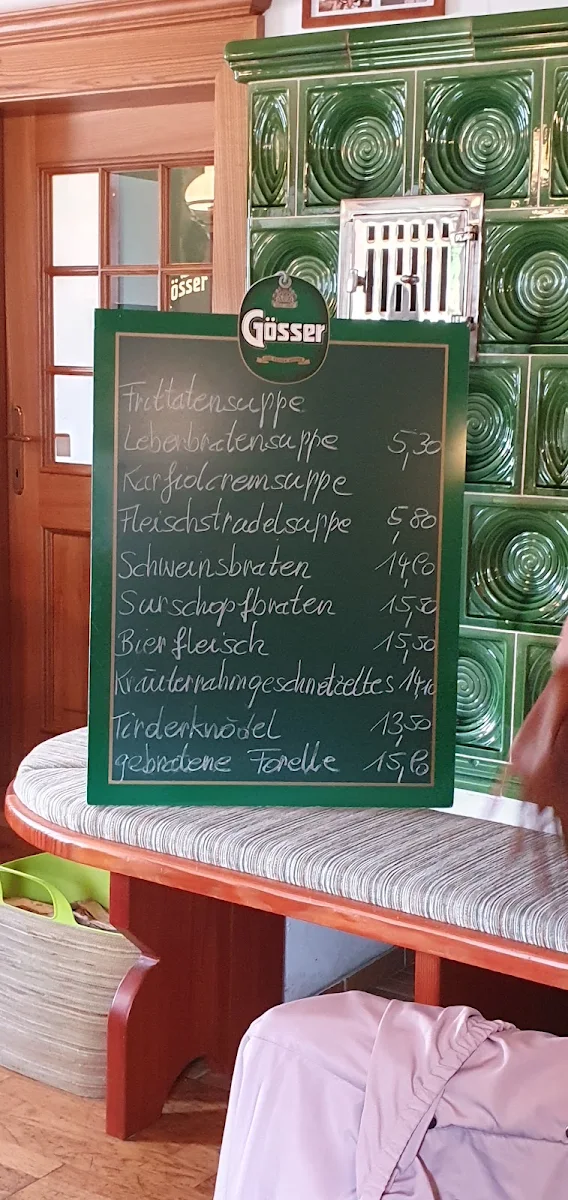 Gösser
Gösser
Frittatensuppe
Leberbratensuppe 5,30
Karfiolcremsuppe
Fleischstradelsuppe 5,80
Schweinsbraten 14,60
Surschopfbraten 15,50
Bierfleisch 15,50
Kräuterrahmgeschnetzeltes 14,10
Tirderknödel 13,50
gebratene Forelle 15,60